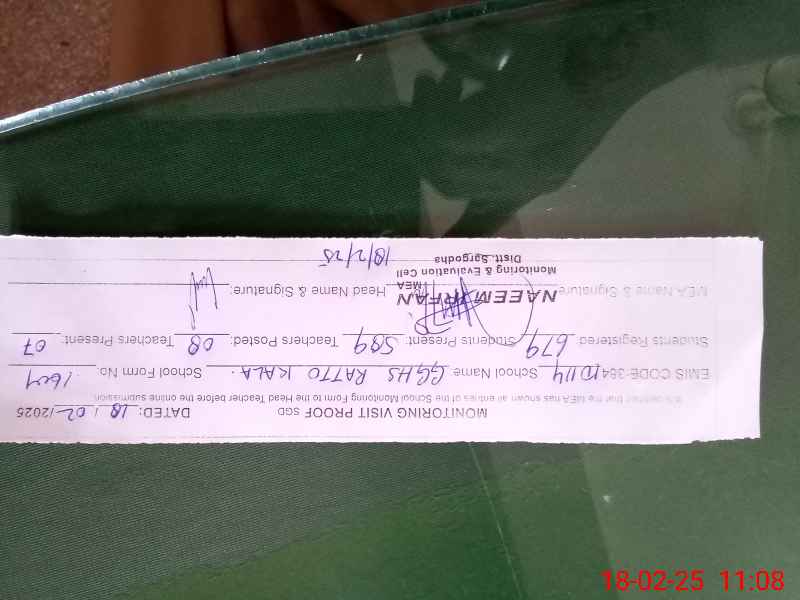 MONITORING VISIT PROOF SGD DATED: 18/02/2025
It is certified that the MEA has shown all entries of the School Monitoring Form to the Head Teacher before the online submission
EMIS CODE-384 10114 School Name GGHS RATTO KALA. School Form No. 1604
Students Registered: 679 Students Present: 589 Teachers Posted: 08 Teachers Present: 07
MEA Name & Signature Head Name & Signature:
NAEEM IRFAN
MEA
Monitoring & Evaluation Cell
Distt. Sargodha
18/2/25
18-02-25 11:08